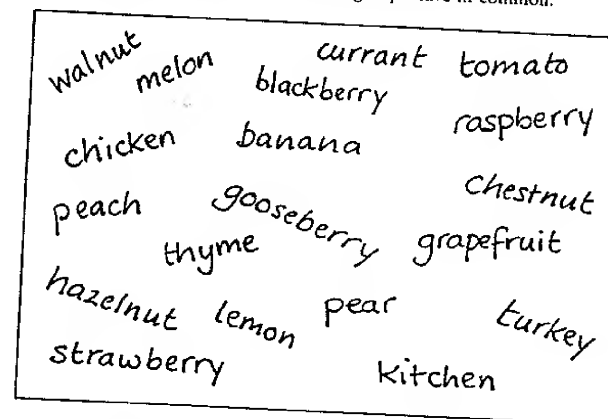 in common.
walnut melon currant tomato
blackberry raspberry
chicken banana
chestnut
peach gooseberry
thyme grapefruit
hazelnut lemon pear turkey
strawberry kitchen